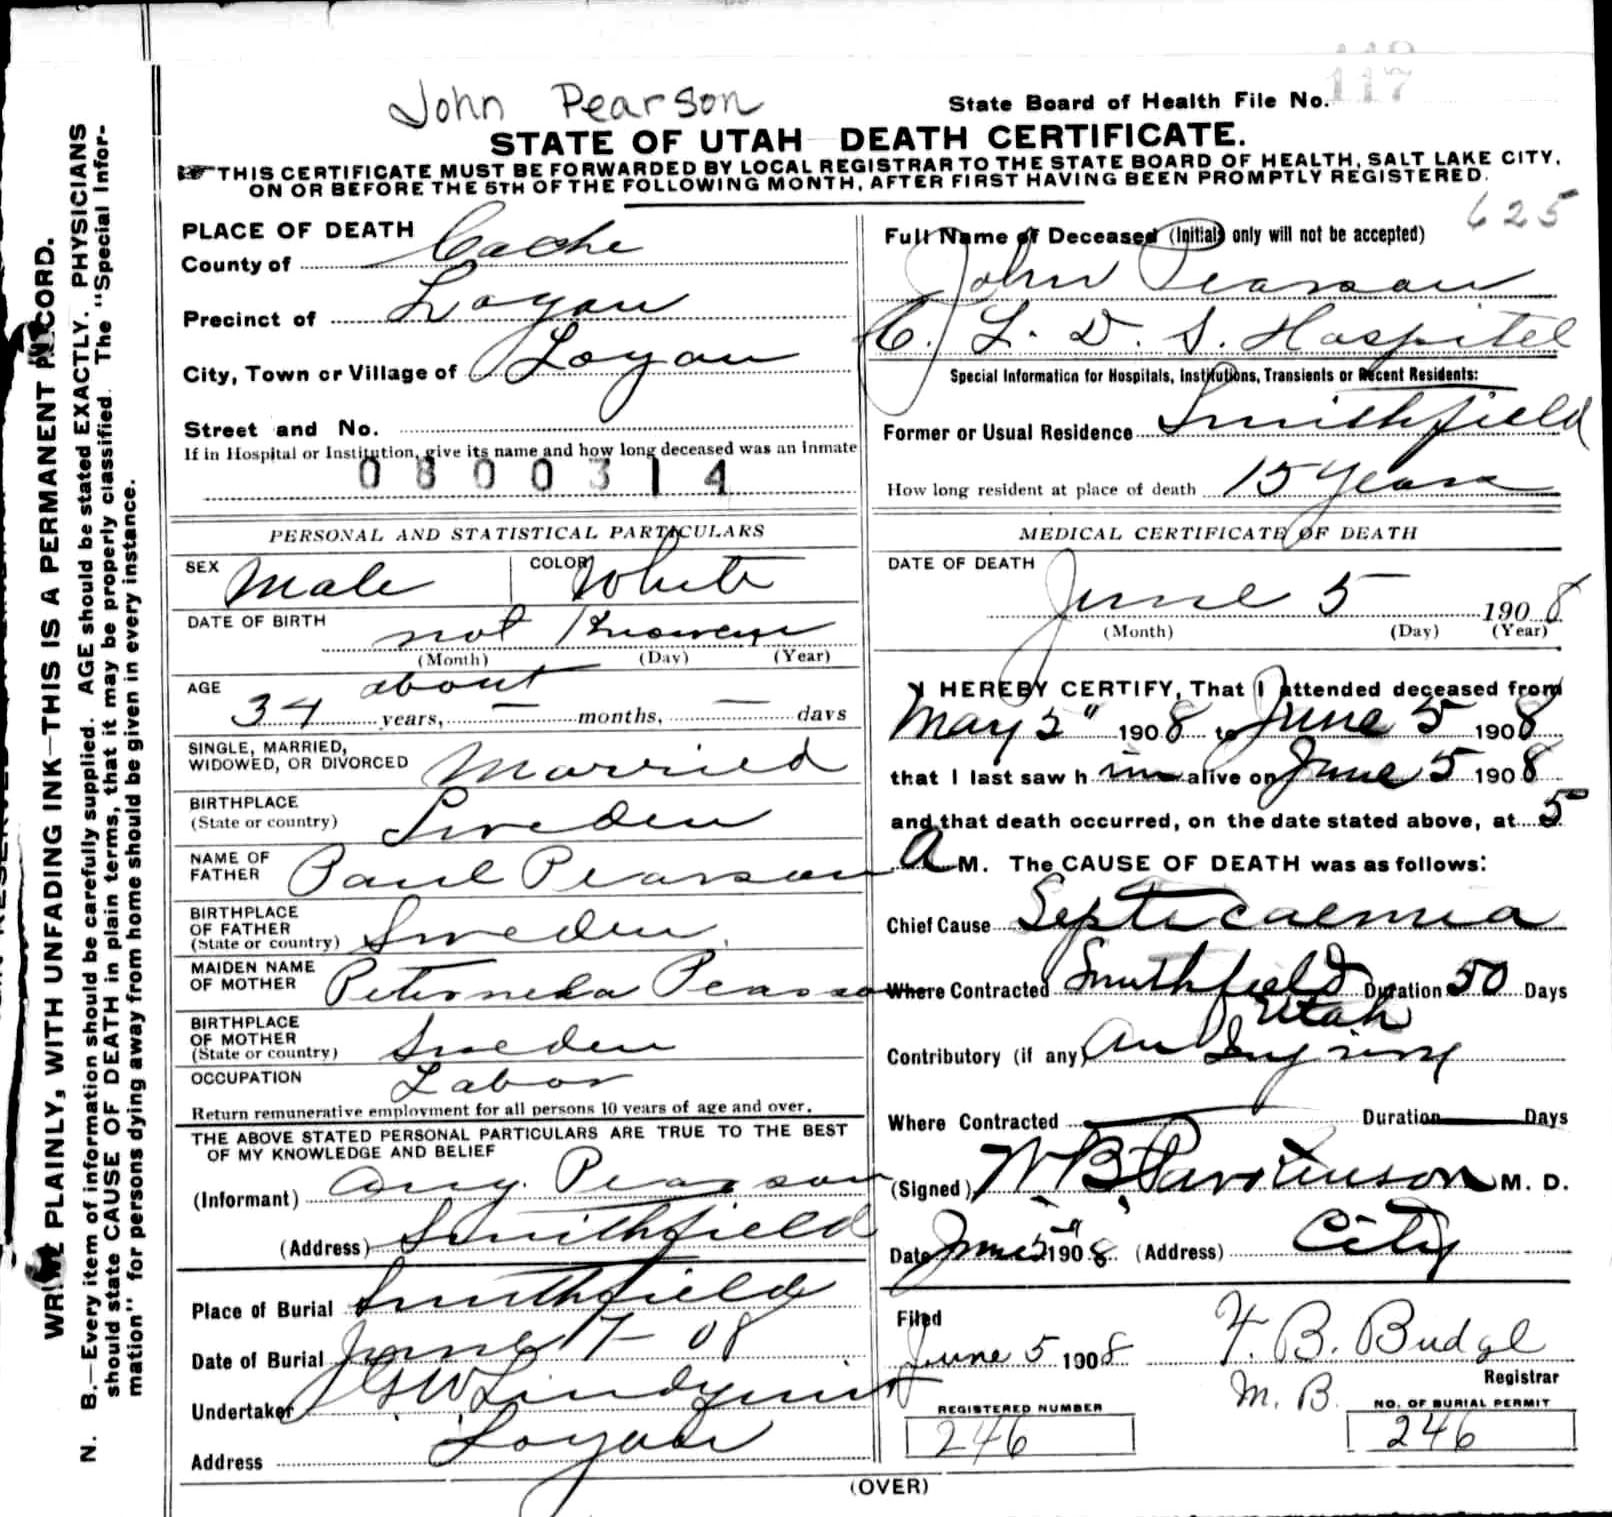 118
117
John Pearson
State Board of Health File No.
STATE OF UTAH DEATH CERTIFICATE.
THIS CERTIFICATE MUST BE FORWARDED BY LOCAL REGISTRAR TO THE STATE BOARD OF HEALTH, SALT LAKE CITY,
ON OR BEFORE THE 5TH OF THE FOLLOWING MONTH, AFTER FIRST HAVING BEEN PROMPTLY REGISTERED.
625
PLACE OF DEATH
County of Cache
Precinct of Logan
City, Town or Village of Logan
Street and No.
If in Hospital or Institution, give its name and how long deceased was an inmate
0800314
Full Name of Deceased (Initials only will not be accepted)
John Pearson
C. L. D. S. Hospitel
Special Information for Hospitals, Institutions, Transients or Recent Residents:
Former or Usual Residence Smithfield
How long resident at place of death 15 years
PERSONAL AND STATISTICAL PARTICULARS
SEX Male
COLOR White
DATE OF BIRTH not Known
(Month) (Day) (Year)
AGE about
34 years, — months, — days
SINGLE, MARRIED,
WIDOWED, OR DIVORCED Married
BIRTHPLACE
(State or country) Sweden
NAME OF
FATHER Paul Pearson
BIRTHPLACE
OF FATHER
(State or country) Sweden
MAIDEN NAME
OF MOTHER Peterneka Pearson
BIRTHPLACE
OF MOTHER
(State or country) Sweden
OCCUPATION Labor
Return remunerative employment for all persons 10 years of age and over.
THE ABOVE STATED PERSONAL PARTICULARS ARE TRUE TO THE BEST
OF MY KNOWLEDGE AND BELIEF
(Informant) Pearson
(Address) Smithfield
Place of Burial Smithfield
Date of Burial June 7- 08
Undertaker G W Lindquist
Address Logan
MEDICAL CERTIFICATE OF DEATH
DATE OF DEATH
June 5 1908
(Month) (Day) (Year)
I HEREBY CERTIFY, That I attended deceased from
May 5" 1908 to June 5 1908
that I last saw him alive on June 5 1908
and that death occurred, on the date stated above, at 5
A M. The CAUSE OF DEATH was as follows:
Chief Cause Septicaemia
Where Contracted Smithfield Duration 50 Days
Utah
Contributory (if any) An Injury
Where Contracted — Duration — Days
(Signed) W B Parkinson M. D.
Date June 5" 1908 (Address) City
Filed
June 5 1908 F. B. Budge
Registrar
M. B.
REGISTERED NUMBER
246
NO. OF BURIAL PERMIT
246
(OVER)
WRITE PLAINLY, WITH UNFADING INK—THIS IS A PERMANENT RECORD.
N. B.—Every item of information should be carefully supplied. AGE should be stated EXACTLY. PHYSICIANS
should state CAUSE OF DEATH in plain terms, that it may be properly classified. The "Special Infor-
mation" for persons dying away from home should be given in every instance.